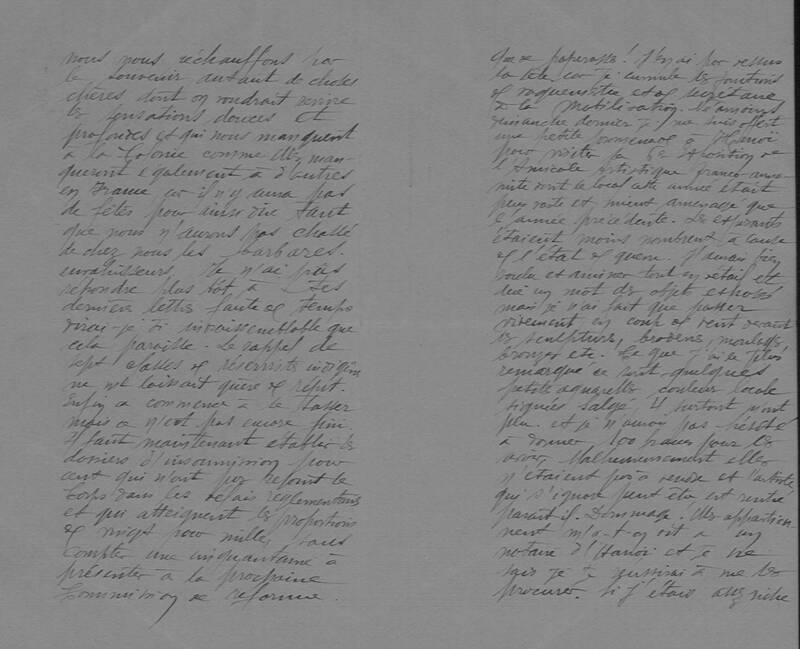 nous nous réchauffons par
le souvenir, autant de choses
chères dont on voudrait revivre
les sensations douces et
profondes et qui nous manquent
à la Colonie comme elles man-
queront également à d'autres
en France car il n'y aura pas
de fêtes pour ainsi dire tant
que nous n'aurons pas chassé
de chez nous les barbares
envahisseurs. Je n'ai pas
répondre plus tôt à tes
dernières lettres faute de temps
dirai-je si invraisemblable que
cela paraisse. Le rappel de
sept classes de réservistes indigènes
ne me laissait guère de répit.
Enfin ça commence à se tasser
mais ça n'est pas encore fini.
Il faut maintenant établir les
dossiers d'insoumission pour
ceux qui n'ont pas rejoint le
Corps dans les délais réglementaires
et qui atteignent les proportions
de vingt pour mille, sans
compter une cinquantaine à
présenter à la prochaine
Commission de réforme.
que de paperasse! J'en ai par dessus
la tête car je cumule les fonctions
de vaguemestre et de secrétaire
de la Mobilisation. Néanmoins
dimanche dernier je me suis offert
une petite promenade à Hanoï
pour visiter la 6e Exposition de
l'Amicale Artistique franco-anna-
mite dont le local cette année était
plus vaste et mieux aménagé que
l'année précédente. Les exposants
étaient moins nombreux à cause
de l'état de guerre. J'aurais bien
voulu examiner tout en détail et
dire un mot des objets exposés
mais je n'ai fait que passer
vivement en coup de vent devant
les sculptures, broderies, moulages,
bronzes etc. Ce que j'ai le plus
remarqué ce sont quelques
petites aquarelles, couleur locale
signées Salgé, 4 surtout m'ont
plu et je n'aurais pas hésité
à donner 100 francs pour les
avoir. Malheureusement elles
n'étaient pas à vendre et l'artiste
qui s'ignore peut être est rentré
paraît il. Dommage. Elles appartien-
nent m'a-t-on dit à un
notaire d'Hanoï et je ne
sais si je réussirai à me les
procurer. Si j'étais assez riche